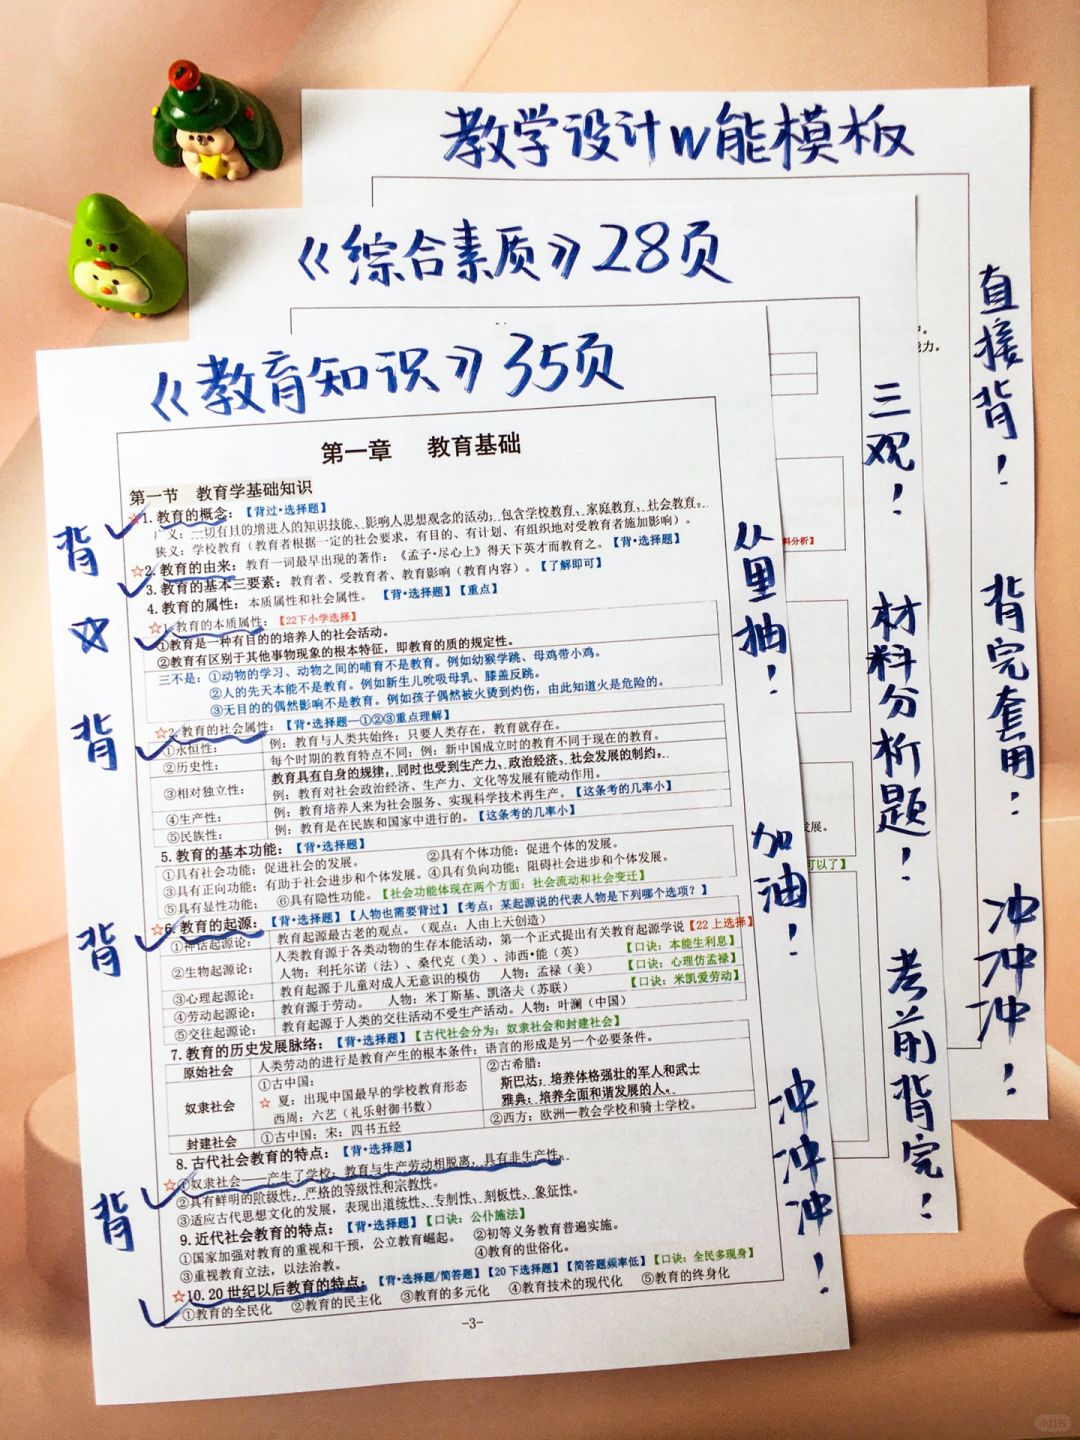 教学设计w能模板
直接背！
背完套用！
冲冲冲！
《综合素质》28页
三观！
材料分析题！
考前背完！
料分析】
能力。
发展。
可以了】
《教育知识》35页
从里抽！
加油！
冲冲冲！
背
☆
背
背
背
第一章 教育基础
第一节 教育学基础知识
☆1.教育的概念：【背过•选择题】
广义：一切有目的增进人的知识技能、影响人思想观念的活动；包含学校教育、家庭教育、社会教育。
狭义：学校教育（教育者根据一定的社会要求，有目的、有计划、有组织地对受教育者施加影响）。
☆2.教育的由来：教育一词最早出现的著作：《孟子·尽心上》得天下英才而教育之。【背•选择题】
3.教育的基本三要素：教育者、受教育者、教育影响（教育内容）。【了解即可】
4.教育的属性：本质属性和社会属性。【背•选择题】【重点】
☆1.教育的本质属性：【22下小学选择】
①教育是一种有目的的培养人的社会活动。
②教育有区别于其他事物现象的根本特征，即教育的质的规定性。
三不是：①动物的学习、动物之间的哺育不是教育。例如幼猴学跳、母鸡带小鸡。
②人的先天本能不是教育。例如新生儿吮吸母乳、膝盖反跳。
③无目的的偶然影响不是教育。例如孩子偶然被火烫到灼伤，由此知道火是危险的。
☆2.教育的社会属性：【背•选择题—①②③重点理解】
①永恒性： 例：教育与人类共始终；只要人类存在，教育就存在。
②历史性： 每个时期的教育特点不同；例：新中国成立时的教育不同于现在的教育。
③相对独立性： 教育具有自身的规律，同时也受到生产力、政治经济、社会发展的制约。
例：教育对社会政治经济、生产力、文化等发展有能动作用。
④生产性： 例：教育培养人来为社会服务、实现科学技术再生产。【这条考的几率小】
⑤民族性： 例：教育是在民族和国家中进行的。【这条考的几率小】
5.教育的基本功能：【背•选择题】
①具有社会功能：促进社会的发展。 ②具有个体功能：促进个体的发展。
③具有正向功能：有助于社会进步和个体发展。④具有负向功能：阻碍社会进步和个体发展。
⑤具有显性功能。 ⑥具有隐性功能。【社会功能体现在两个方面：社会流动和社会变迁】
☆6.教育的起源：【背•选择题】【人物也需要背过】【考点：某起源说的代表人物是下列哪个选项？】
①神话起源论： 教育起源最古老的观点。（观点：人由上天创造）
②生物起源论： 人类教育源于各类动物的生存本能活动，第一个正式提出有关教育起源学说【22上选择】
人物：利托尔诺（法）、桑代克（美）、沛西•能（英） 【口诀：本能生利息】
③心理起源论： 教育起源于儿童对成人无意识的模仿 人物：孟禄（美） 【口诀：心理仿孟禄】
④劳动起源论： 教育源于劳动。 人物：米丁斯基、凯洛夫（苏联） 【口诀：米凯爱劳动】
⑤交往起源论： 教育起源于人类的交往活动不受生产活动。人物：叶澜（中国）
7.教育的历史发展脉络：【背•选择题】【古代社会分为：奴隶社会和封建社会】
原始社会 人类劳动的进行是教育产生的根本条件；语言的形成是另一个必要条件。
奴隶社会 ①古中国： ②古希腊：
☆ 夏：出现中国最早的学校教育形态 斯巴达：培养体格强壮的军人和武士
西周：六艺（礼乐射御书数） 雅典：培养全面和谐发展的人。
封建社会 ①古中国：宋：四书五经 ②西方：欧洲—教会学校和骑士学校。
8.古代社会教育的特点：【背•选择题】
☆①奴隶社会——产生了学校；教育与生产劳动相脱离，具有非生产性。
②具有鲜明的阶级性，严格的等级性和宗教性。
③适应古代思想文化的发展，表现出道统性、专制性、刻板性、象征性。
9.近代社会教育的特点：【背•选择题】【口诀：公仆施法】
①国家加强对教育的重视和干预，公立教育崛起。 ②初等义务教育普遍实施。
③重视教育立法，以法治教。 ④教育的世俗化。
☆10.20世纪以后教育的特点：【背•选择题/简答题】【20下选择题】【简答题频率低】【口诀：全民多现身】
①教育的全民化 ②教育的民主化 ③教育的多元化 ④教育技术的现代化 ⑤教育的终身化
-3-
小红书